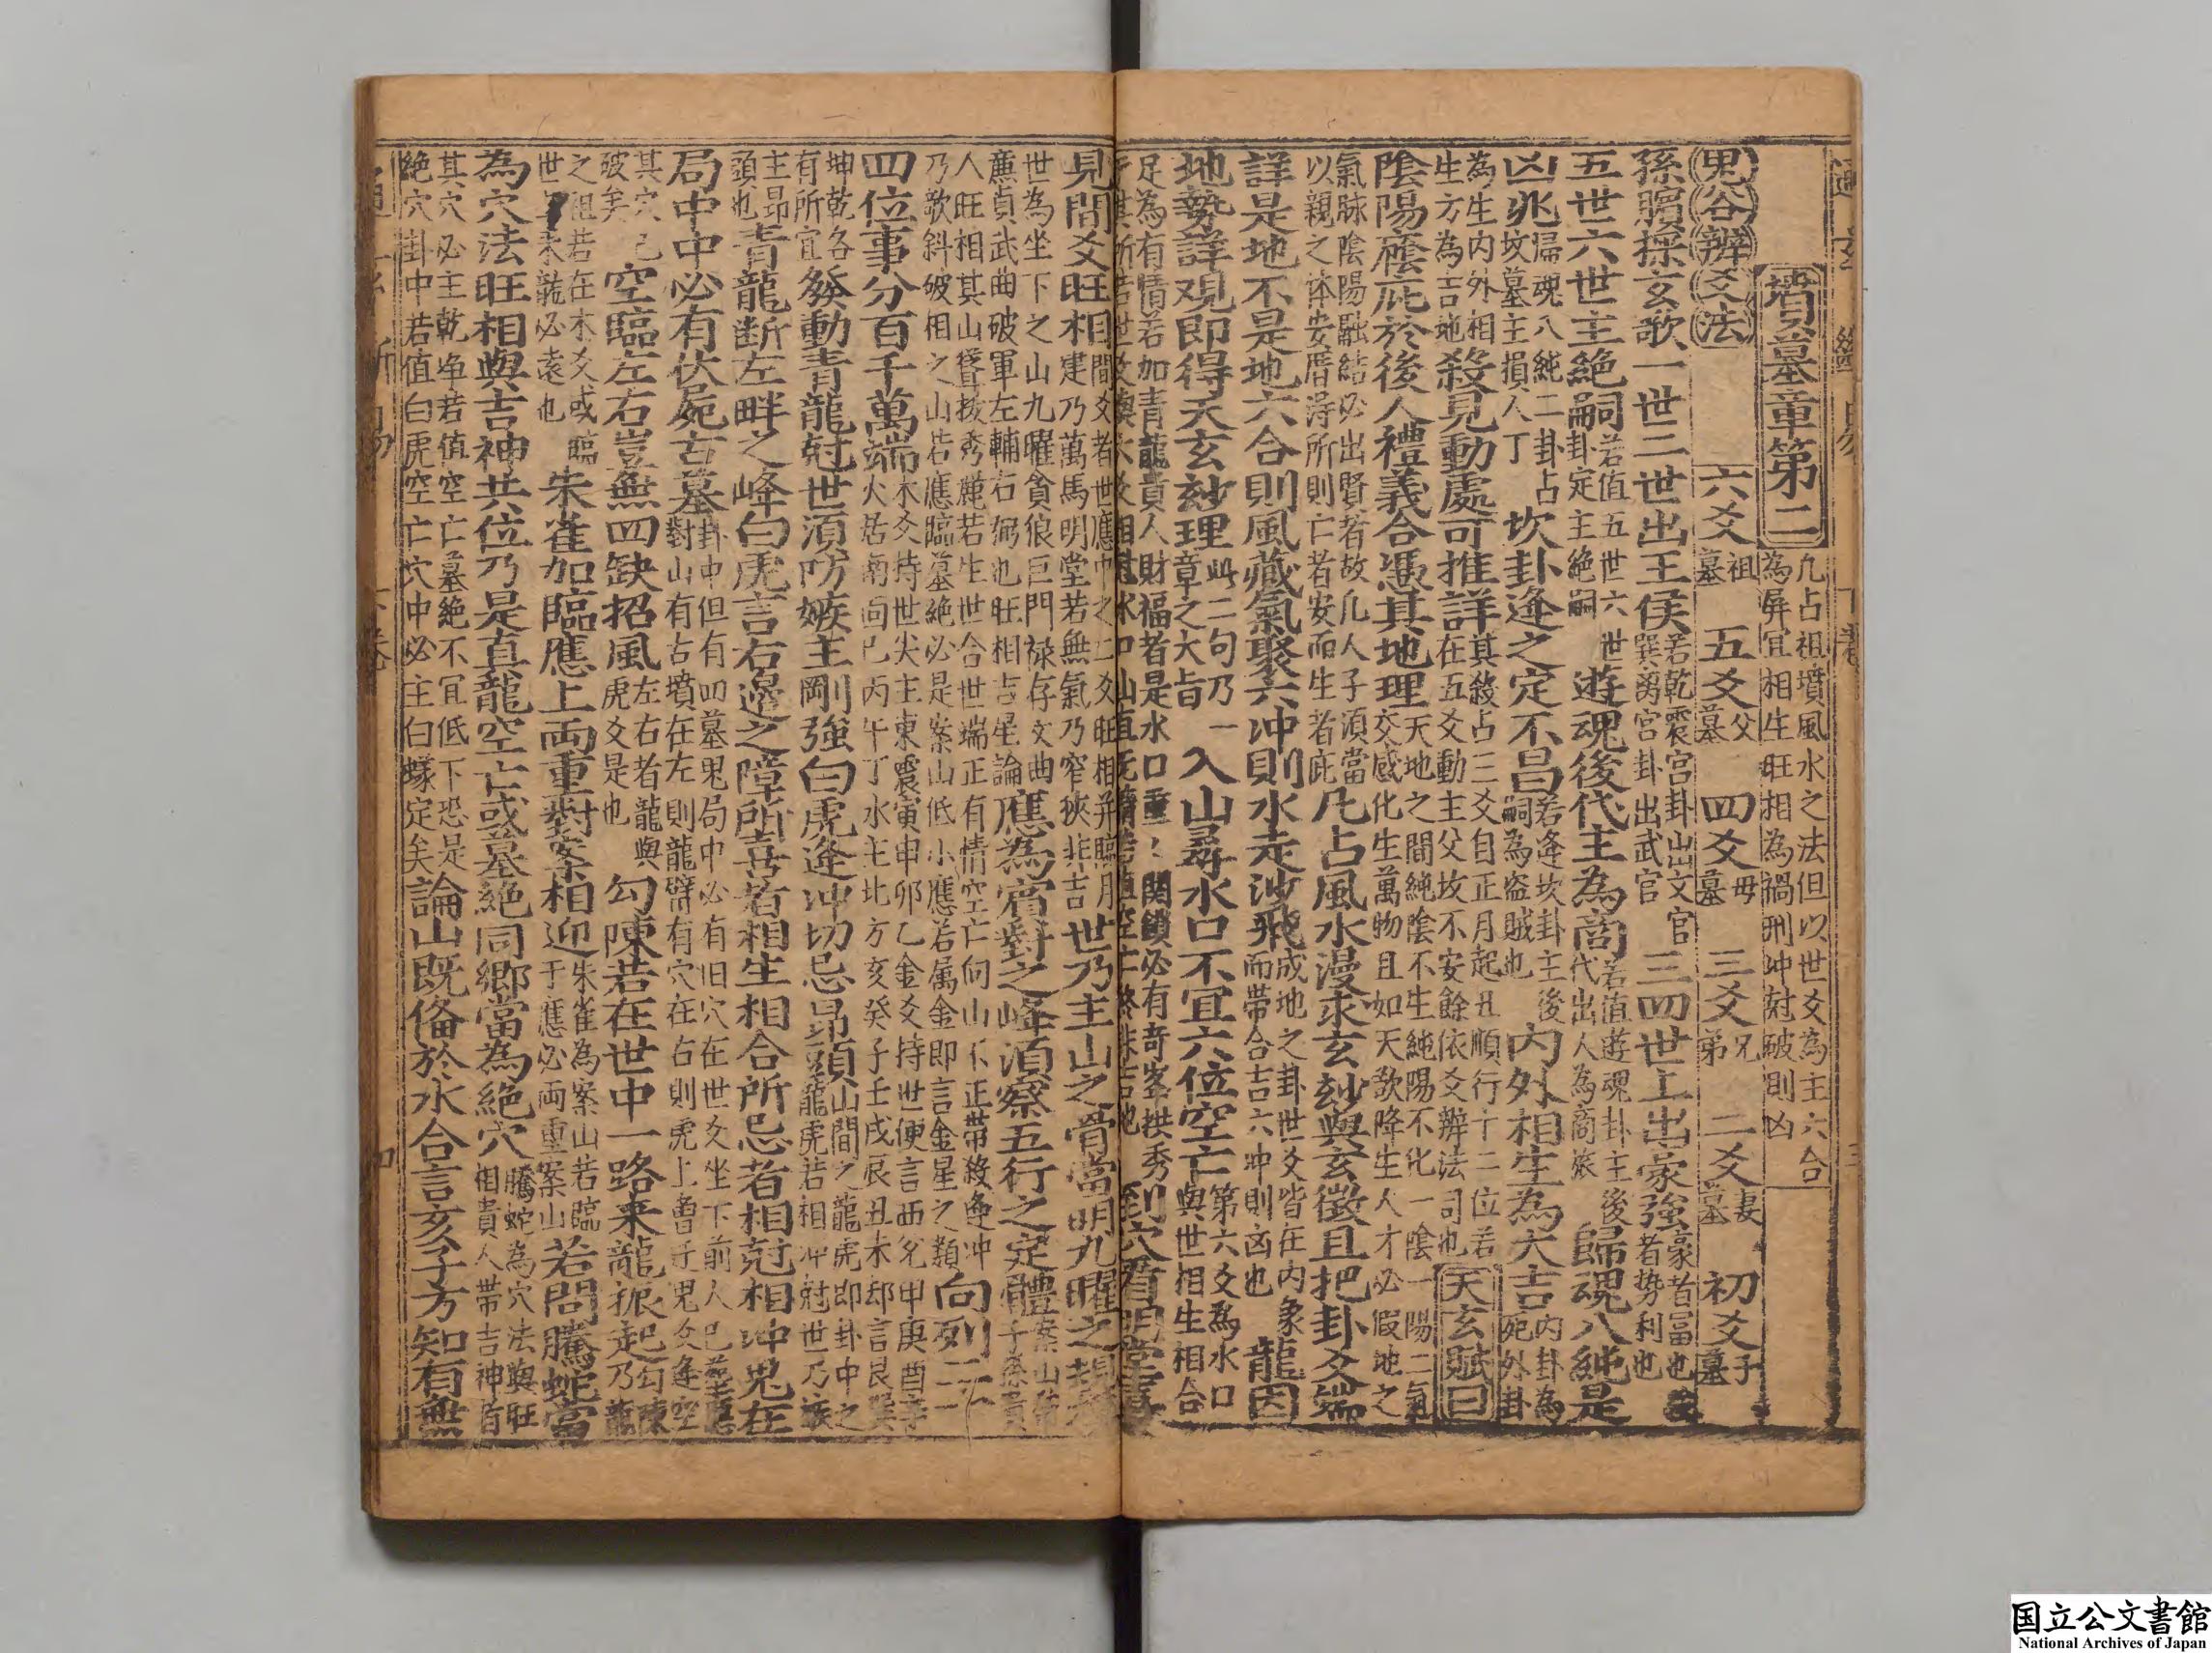 墳墓章第二 凡占祖墳風水之法但以世爻為主六合為屏宜相生旺相為禍刑冲尅破則凶
鬼谷辨爻法 六爻祖墓 五爻父墓 四爻母墓 三爻兄弟 二爻妻墓 初爻子墓
孫臏操玄歌一世二世出王侯若乾震宮卦出文官巽离宮卦出武官三四世上出豪強豪者冨也強者势利也
五世六世主絶嗣若值五世六世卦定主絶嗣遊魂後代主為商若值遊魂卦主後代出人為商旅歸魂八純是
凶兆帰魂八純二卦占坟墓主損人丁坎卦逢之定不昌若逢坎卦主後嗣為盗賊也内外相生為大吉内卦為死外卦
為生内外相生方為吉地殺見動處可推詳其殺占三爻自正月起丑順行十二位若在五爻動主父坟不安餘依爻辨法司也天玄賦曰
陰陽廕庇於後人禮義合憑其地理天地之間純陰不生純陽不化一陰一陽二氣交感化生萬物且如天欲降生人才必假地之
氣脉陰陽融結必出賢者故凡人子須當以親之体安厝得所則亡者安而生者庇凡占風水漫求玄玅與玄徴且把卦爻端
詳是地不是地六合則風藏氣聚六冲則水走沙飛成地之卦世爻皆在内象而帶合吉六冲則凶也龍因
地勢詳观即得天玄玅理此二句乃一章之大旨入山尋水口不宜六位空亡第六爻為水口與世相生相合
足為有情若加青龍貴人財福者是水口重〻関鎖必有奇峯拱秀到穴看明堂
見間爻旺相間爻者世應中之二爻旺相并臨月建乃萬馬明堂若無氣乃窄狹非吉世乃主山之骨當明九曜之
世為坐下之山九曜貪狼巨門禄存文曲亷貞武曲破軍左輔右弼也旺相吉星論應為賓對之峰須察五行之定體
人旺相其山聳拔秀麗若生世合世端正有情空亡向山不正帶殺逢冲乃欹斜破相之山若應臨墓絶必是案山低小應若属金即言金星之類向列二
四位事分百千萬端木爻持世尖主東震寅甲卯乙金爻持世便言西兊申庚酉辛火居南面巳丙午丁水主北方亥癸子壬戌辰丑未却言艮巽
坤乾各有所宜發動青龍尅世須防嫉主剛強白虎逢冲切忌昂頭山間之龍虎即卦中之龍虎若相冲尅世乃嫉
主昂頭也青龍断左畔之峰白虎言右邉之障所喜者相生相合所忌者相尅相冲鬼在
局中中必有伏屍古墓卦中但有叩墓鬼局中必有旧穴在世爻坐下前人已塟對山有古墳在左則龍臂有穴在右則虎上曾迁鬼爻逢空
其穴已破矣空臨左右豈無四缺招風左右者龍與虎爻是也勾陳若在世中一路来龍振起勾陳乃龍
之祖若在木爻或臨世来龍必遠也朱雀加臨應上両重對案相迎朱雀為案山若臨于應必両重案山若問騰蛇當
為穴法旺相與吉神共位乃是真龍空亡或墓絶同鄉當為絶穴騰蛇為穴法與旺相貴人帶吉神者
其穴必主乾净若值空亡墓絶不宜低下恐是絶穴卦中若值白虎空亡穴中必主白蟻定矣論山既俻於水合言亥子方知有無
国立公文書館
National Archives of Japan